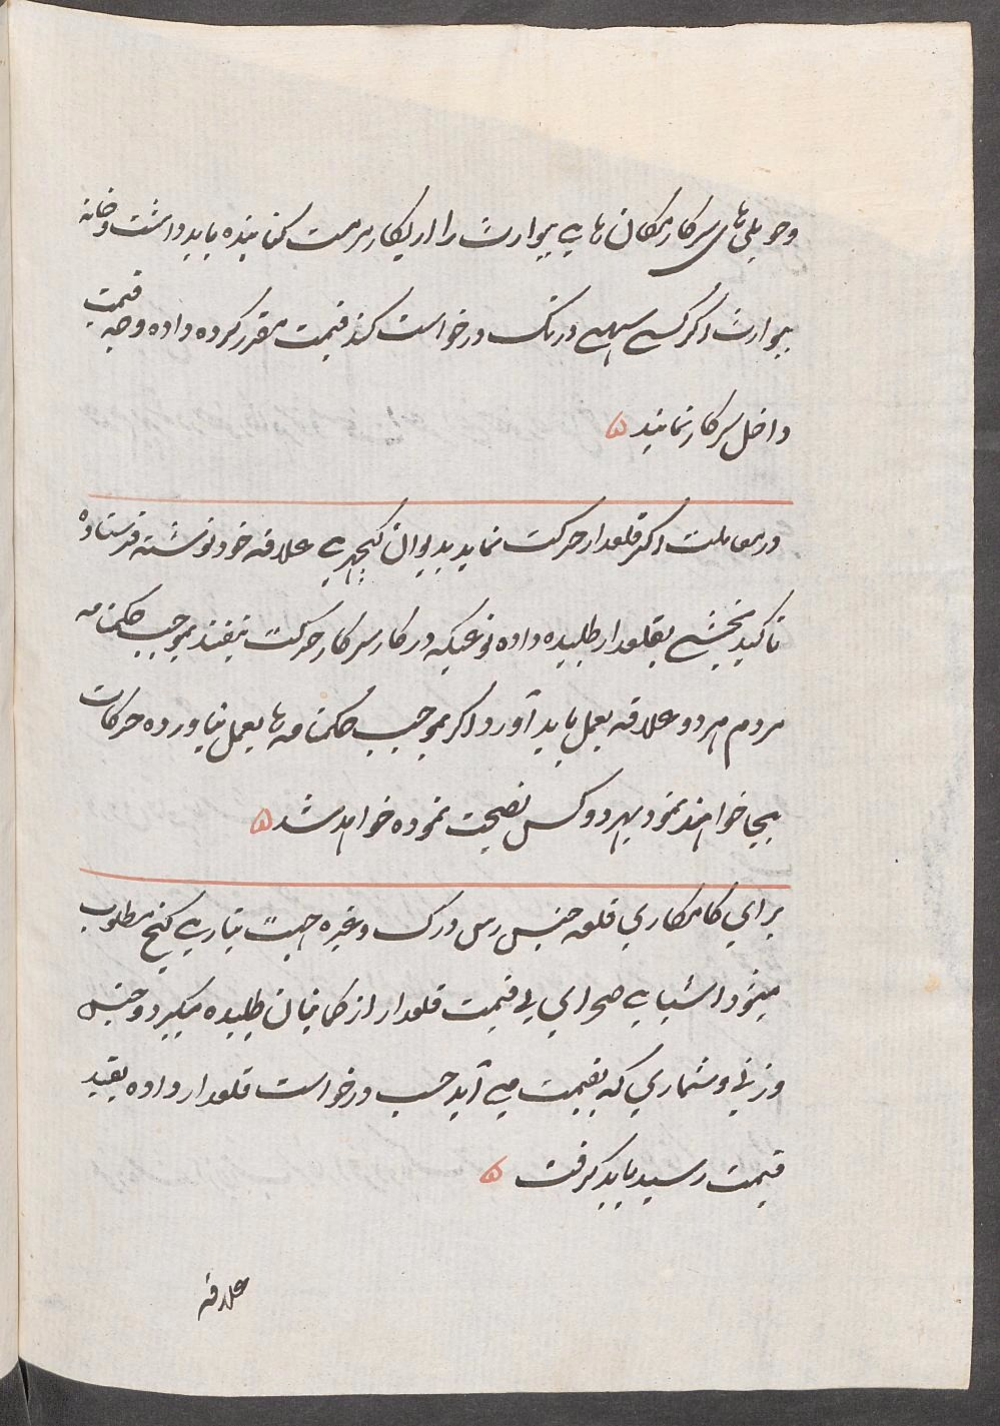 وحویلی های سرکار مکان های بیوارث را از بیکار مرمت کنانیده باید داشت وخانه
بیوارث اگر کسے درخواست کند قیمت مقرر کرده داده وجه قیمت
داخل سرکار نمایند ۵
در معاملت اگر قلعدار حرکت نماید بدیوان کچہرے علاقه خود نوشته فرستاده
تاکید بخشے بقلعدار طلبیده داده نوعیکه در کار سرکار حرکت نیفتد بموجب حکمنامه
مردم هر دو علاقه بعمل باید آورد اگر بموجب حکمنامه ها بعمل نیاورده حرکات
بیجا خواهند نمود بهر دو کس نصیحت نموده خواهد شد ۵
براي کامکاري قلعه جنس وغیره جہت تیارے گنج مطلوب
میشود اشیاے صحراي بی قیمت قلعدار از طلبیده میگیرد و جنس
وزنی و شماري که بقیمت مے آید حسب درخواست قلعدار داده بقید
قیمت رسید باید گرفت ۵
علاقه